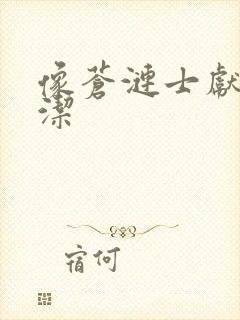 像蒼漣士獻
潔
宿何